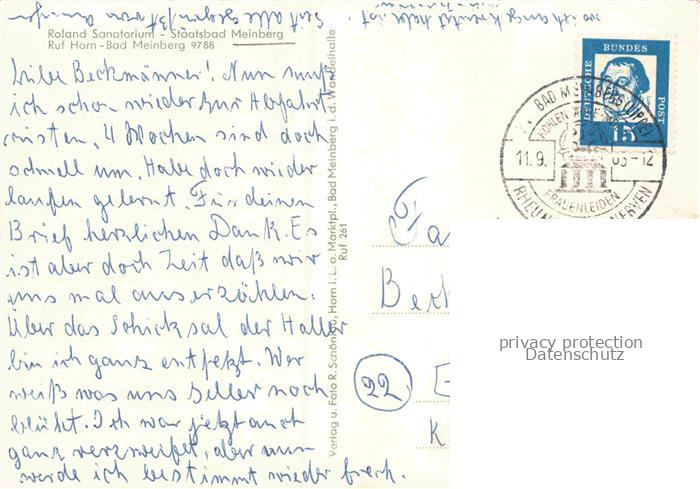 Seid alle gegrüßt von
wo ich angekreuzt habe ist
Roland Sanatorium - Staatsbad Meinberg
Ruf Horn-Bad Meinberg 9788
Liebe Beckmänner! Nun muß
ich schon wieder zur Abfahrt
rüsten. 4 Wochen sind doch
schnell um. Habe doch wieder
laufen gelernt. Für deinen
Brief herzlichen Dank. Es
ist aber doch Zeit daß wir
uns mal auserzählen.
Über das Schicksal der Haller
bin ich ganz entsetzt. Wer
weiß was uns noch
blüht. Ich war jetzt auch
ganz verzweifelt, aber nun
werde ich bestimmt wieder frech.
Verlag u. Foto R. Schöning, Horn i. L. a. Marktpl., Bad Meinberg i. d. Wandelhalle
Ruf 261
DEUTSCHE BUNDES POST
15
BAD MEINBERG (LIPPE)
KOHLEN
11.9. 63-12
FRAUENLEIDEN
RHEUMA NERVEN
Fa
Beck
22
E
K
privacy protection
Datenschutz